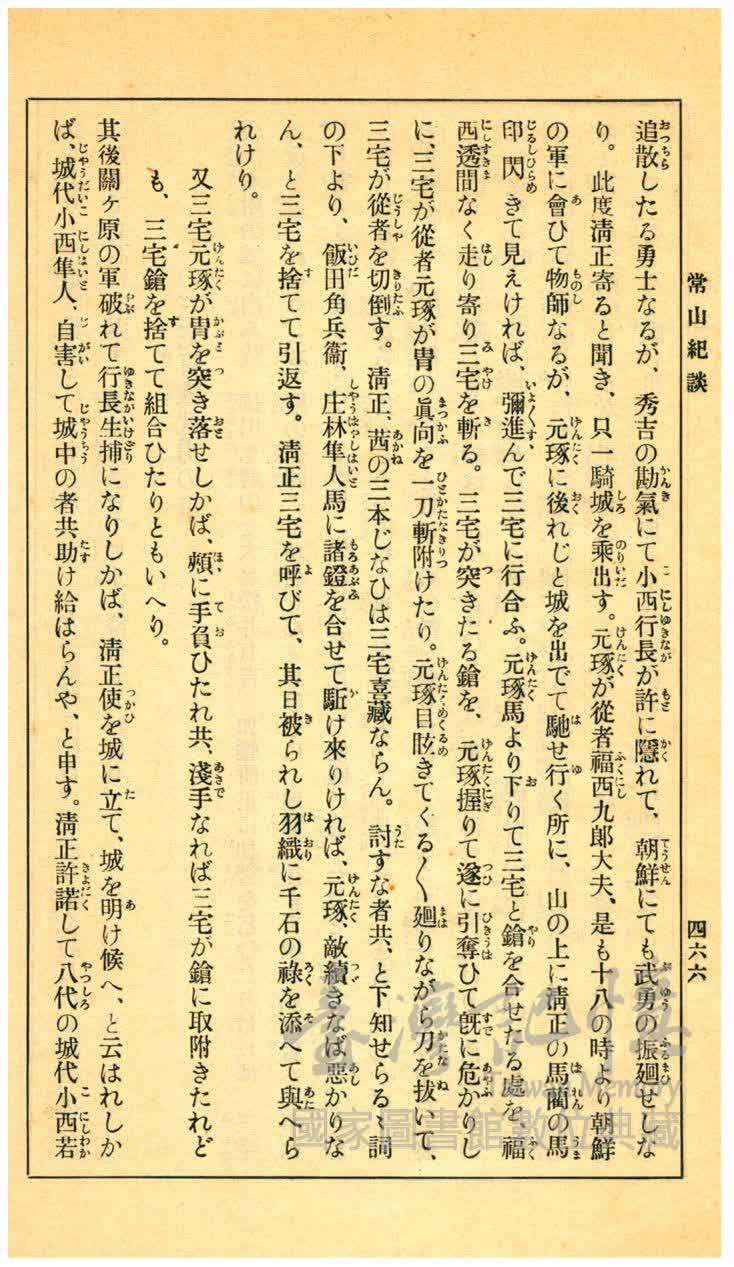 常山紀談
四六六
追散したる勇士なるが、秀吉の勘氣にて小西行長が許に隱れて、朝鮮にても武勇の振廻せしな
り。此度淸正寄ると聞き、只一騎城を乘出す。元琢が從者福西九郎大夫、是も十八の時より朝鮮
の軍に會ひて物師なるが、元琢に後れじと城を出でて馳せ行く所に、山の上に淸正の馬藺の馬
印閃きて見えければ、彌進んで三宅に行合ふ。元琢馬より下りて三宅と鎗を合せたる處を、福
西透間なく走り寄り三宅を斬る。三宅が突きたる鎗を、元琢握りて遂に引奪ひて旣に危かりし
に、三宅が從者元琢が冑の眞向を一刀斬附けたり。元琢目眩きてくる〱廻りながら刀を拔いて、
三宅が從者を切倒す。淸正、茜の三本じなひは三宅喜藏ならん。討すな者共、と下知せらるゝ詞
の下より、飯田角兵衞、庄林隼人馬に諸鐙を合せて駈け來りければ、元琢、敵續きなば惡かりな
ん、と三宅を捨てて引返す。淸正三宅を呼びて、其日被られし羽織に千石の祿を添へて與へら
れけり。
又三宅元琢が冑を突き落せしかば、頰に手負ひたれ共、淺手なれば三宅が鎗に取附きたれど
も、三宅鎗を捨てて組合ひたりともいへり。
其後關ヶ原の軍破れて行長生捕になりしかば、淸正使を城に立て、城を明け候へ、と云はれしか
ば、城代小西隼人、自害して城中の者共助け給はらんや、と申す。淸正許諾して八代の城代小西若
臺灣記憶
Taiwan Memory
國家圖書館數位典藏